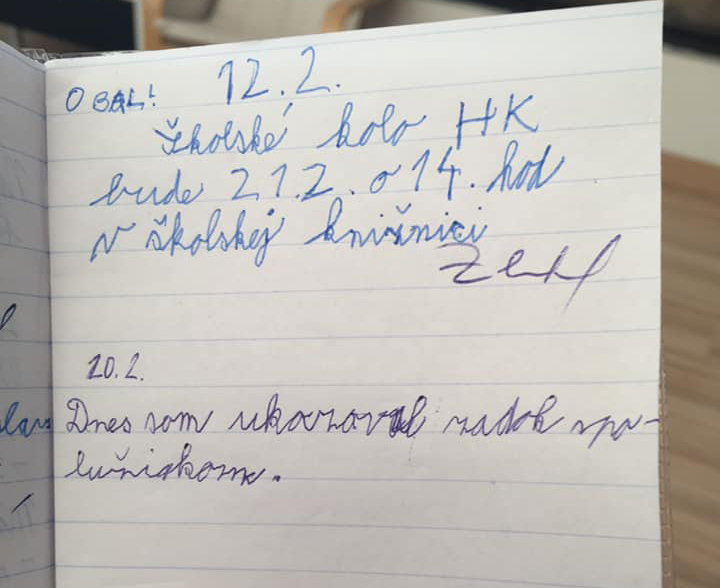 OBAL! 12.2.
Školské kolo HK
bude 21.2. o 14. hod
v školskej knižnici
20.2.
Dnes som ukazoval zadok spo-
lužiakom.